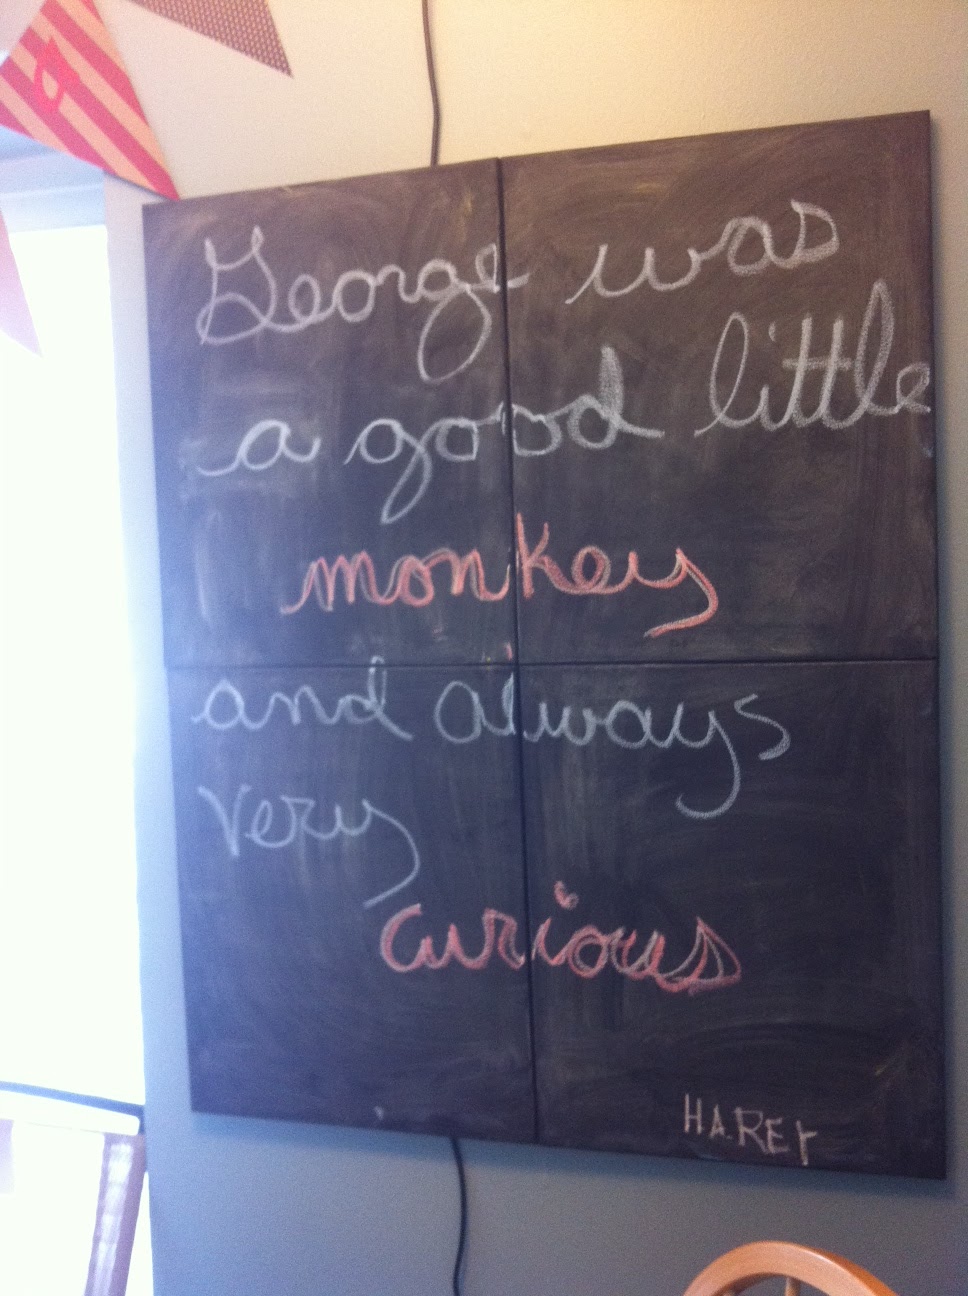 George was
a good little
monkey
and always
very
curious
HAREY